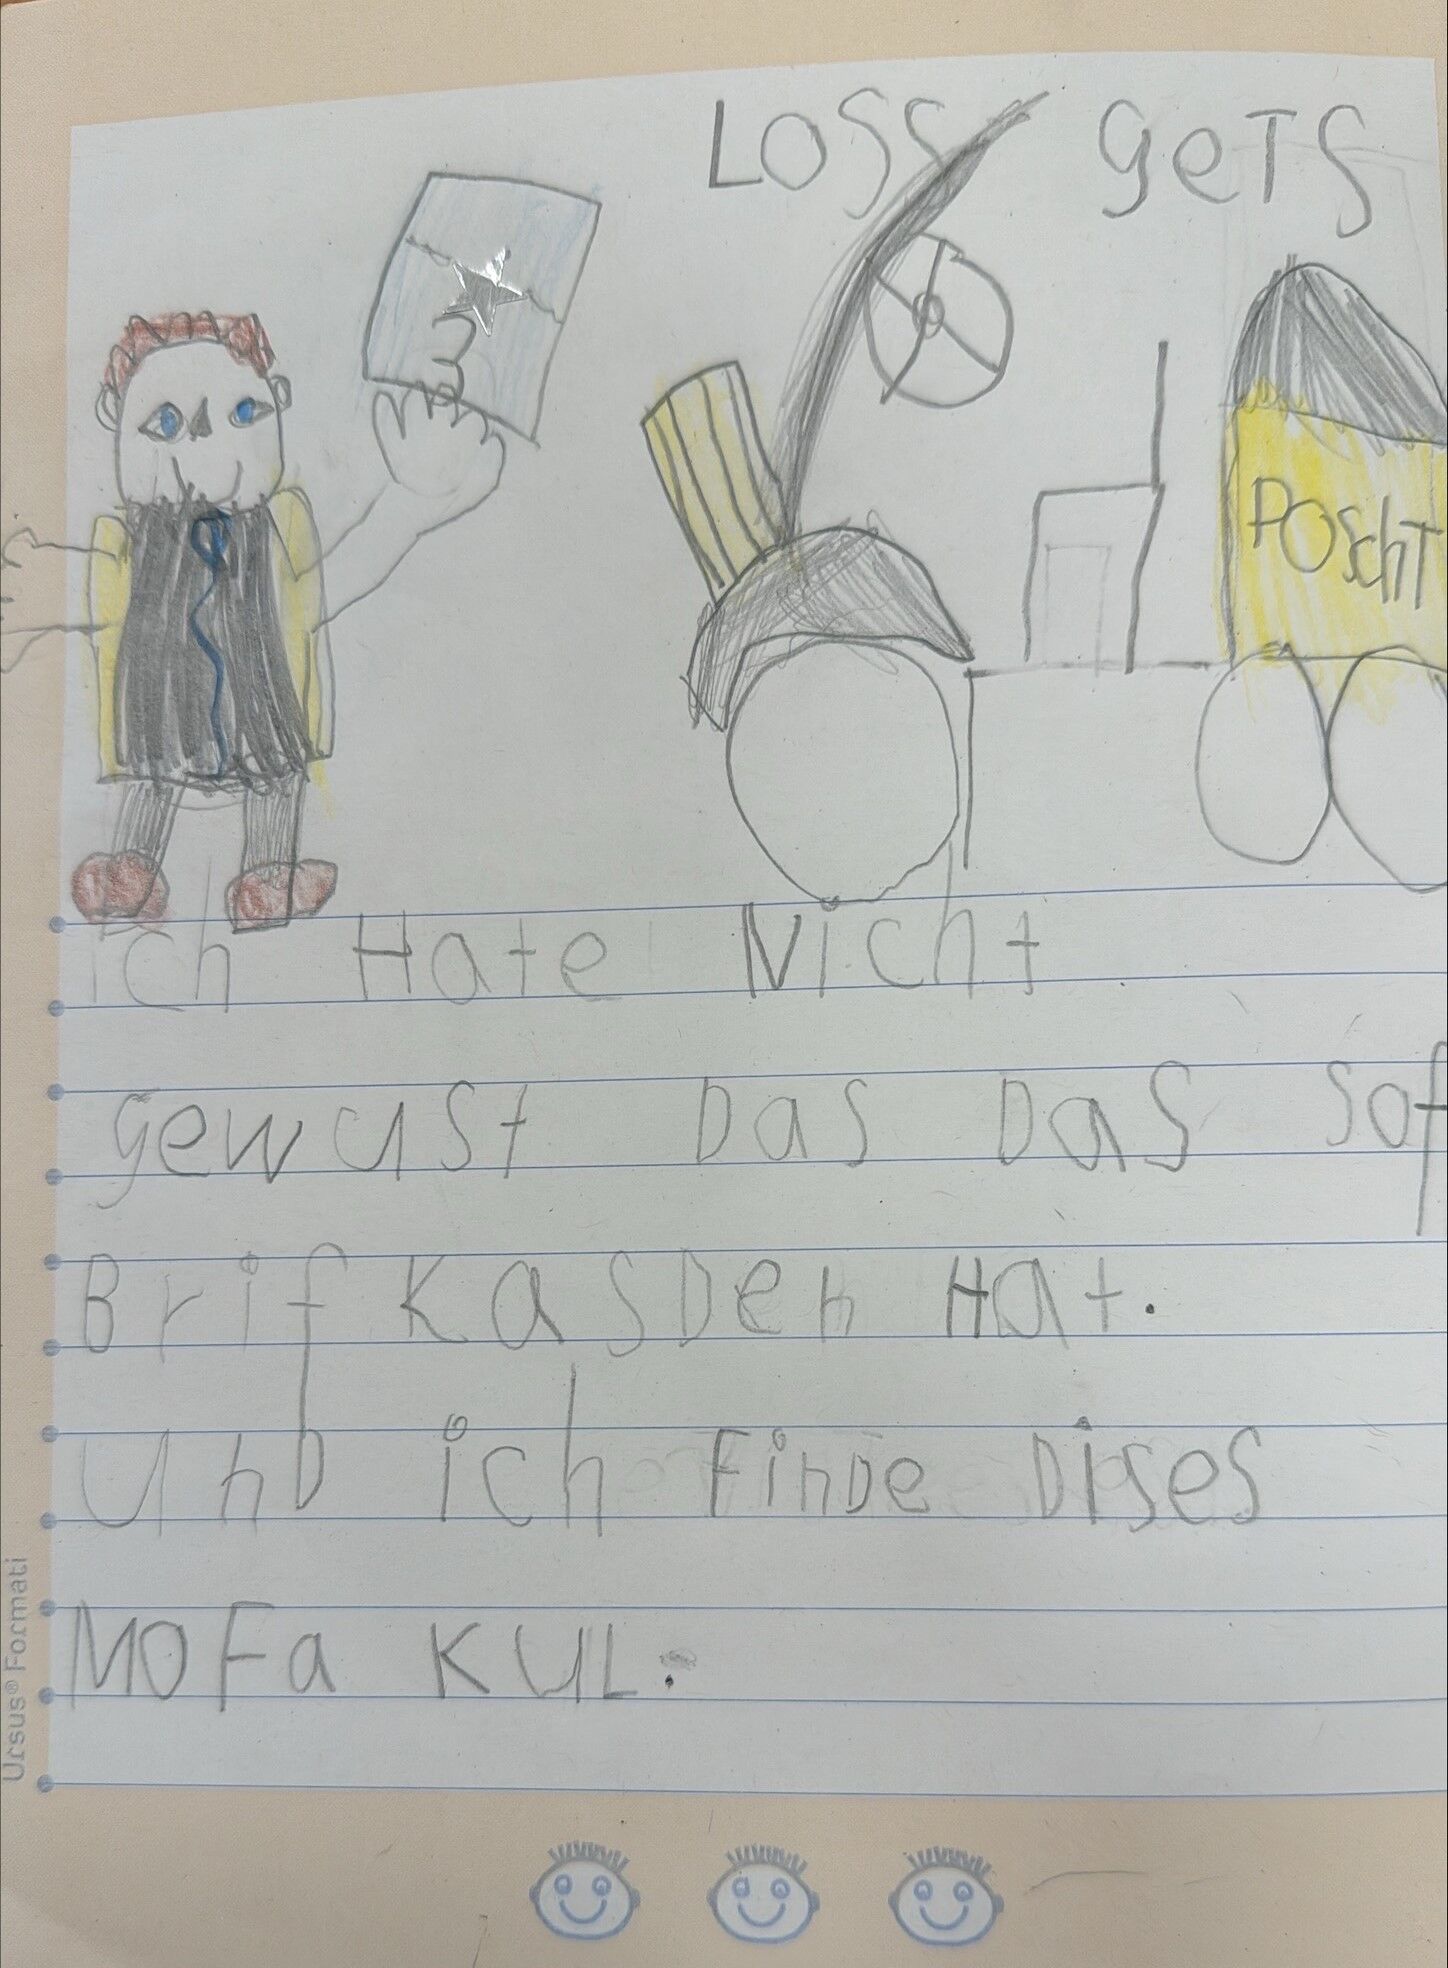 LOSS GETS
POSCHT
ich Hate Nicht
gewust Das Das Sof
Brif KasDen Hat.
UnD ich FinDe Dises
MOFa KUL.
Ursus® Formati